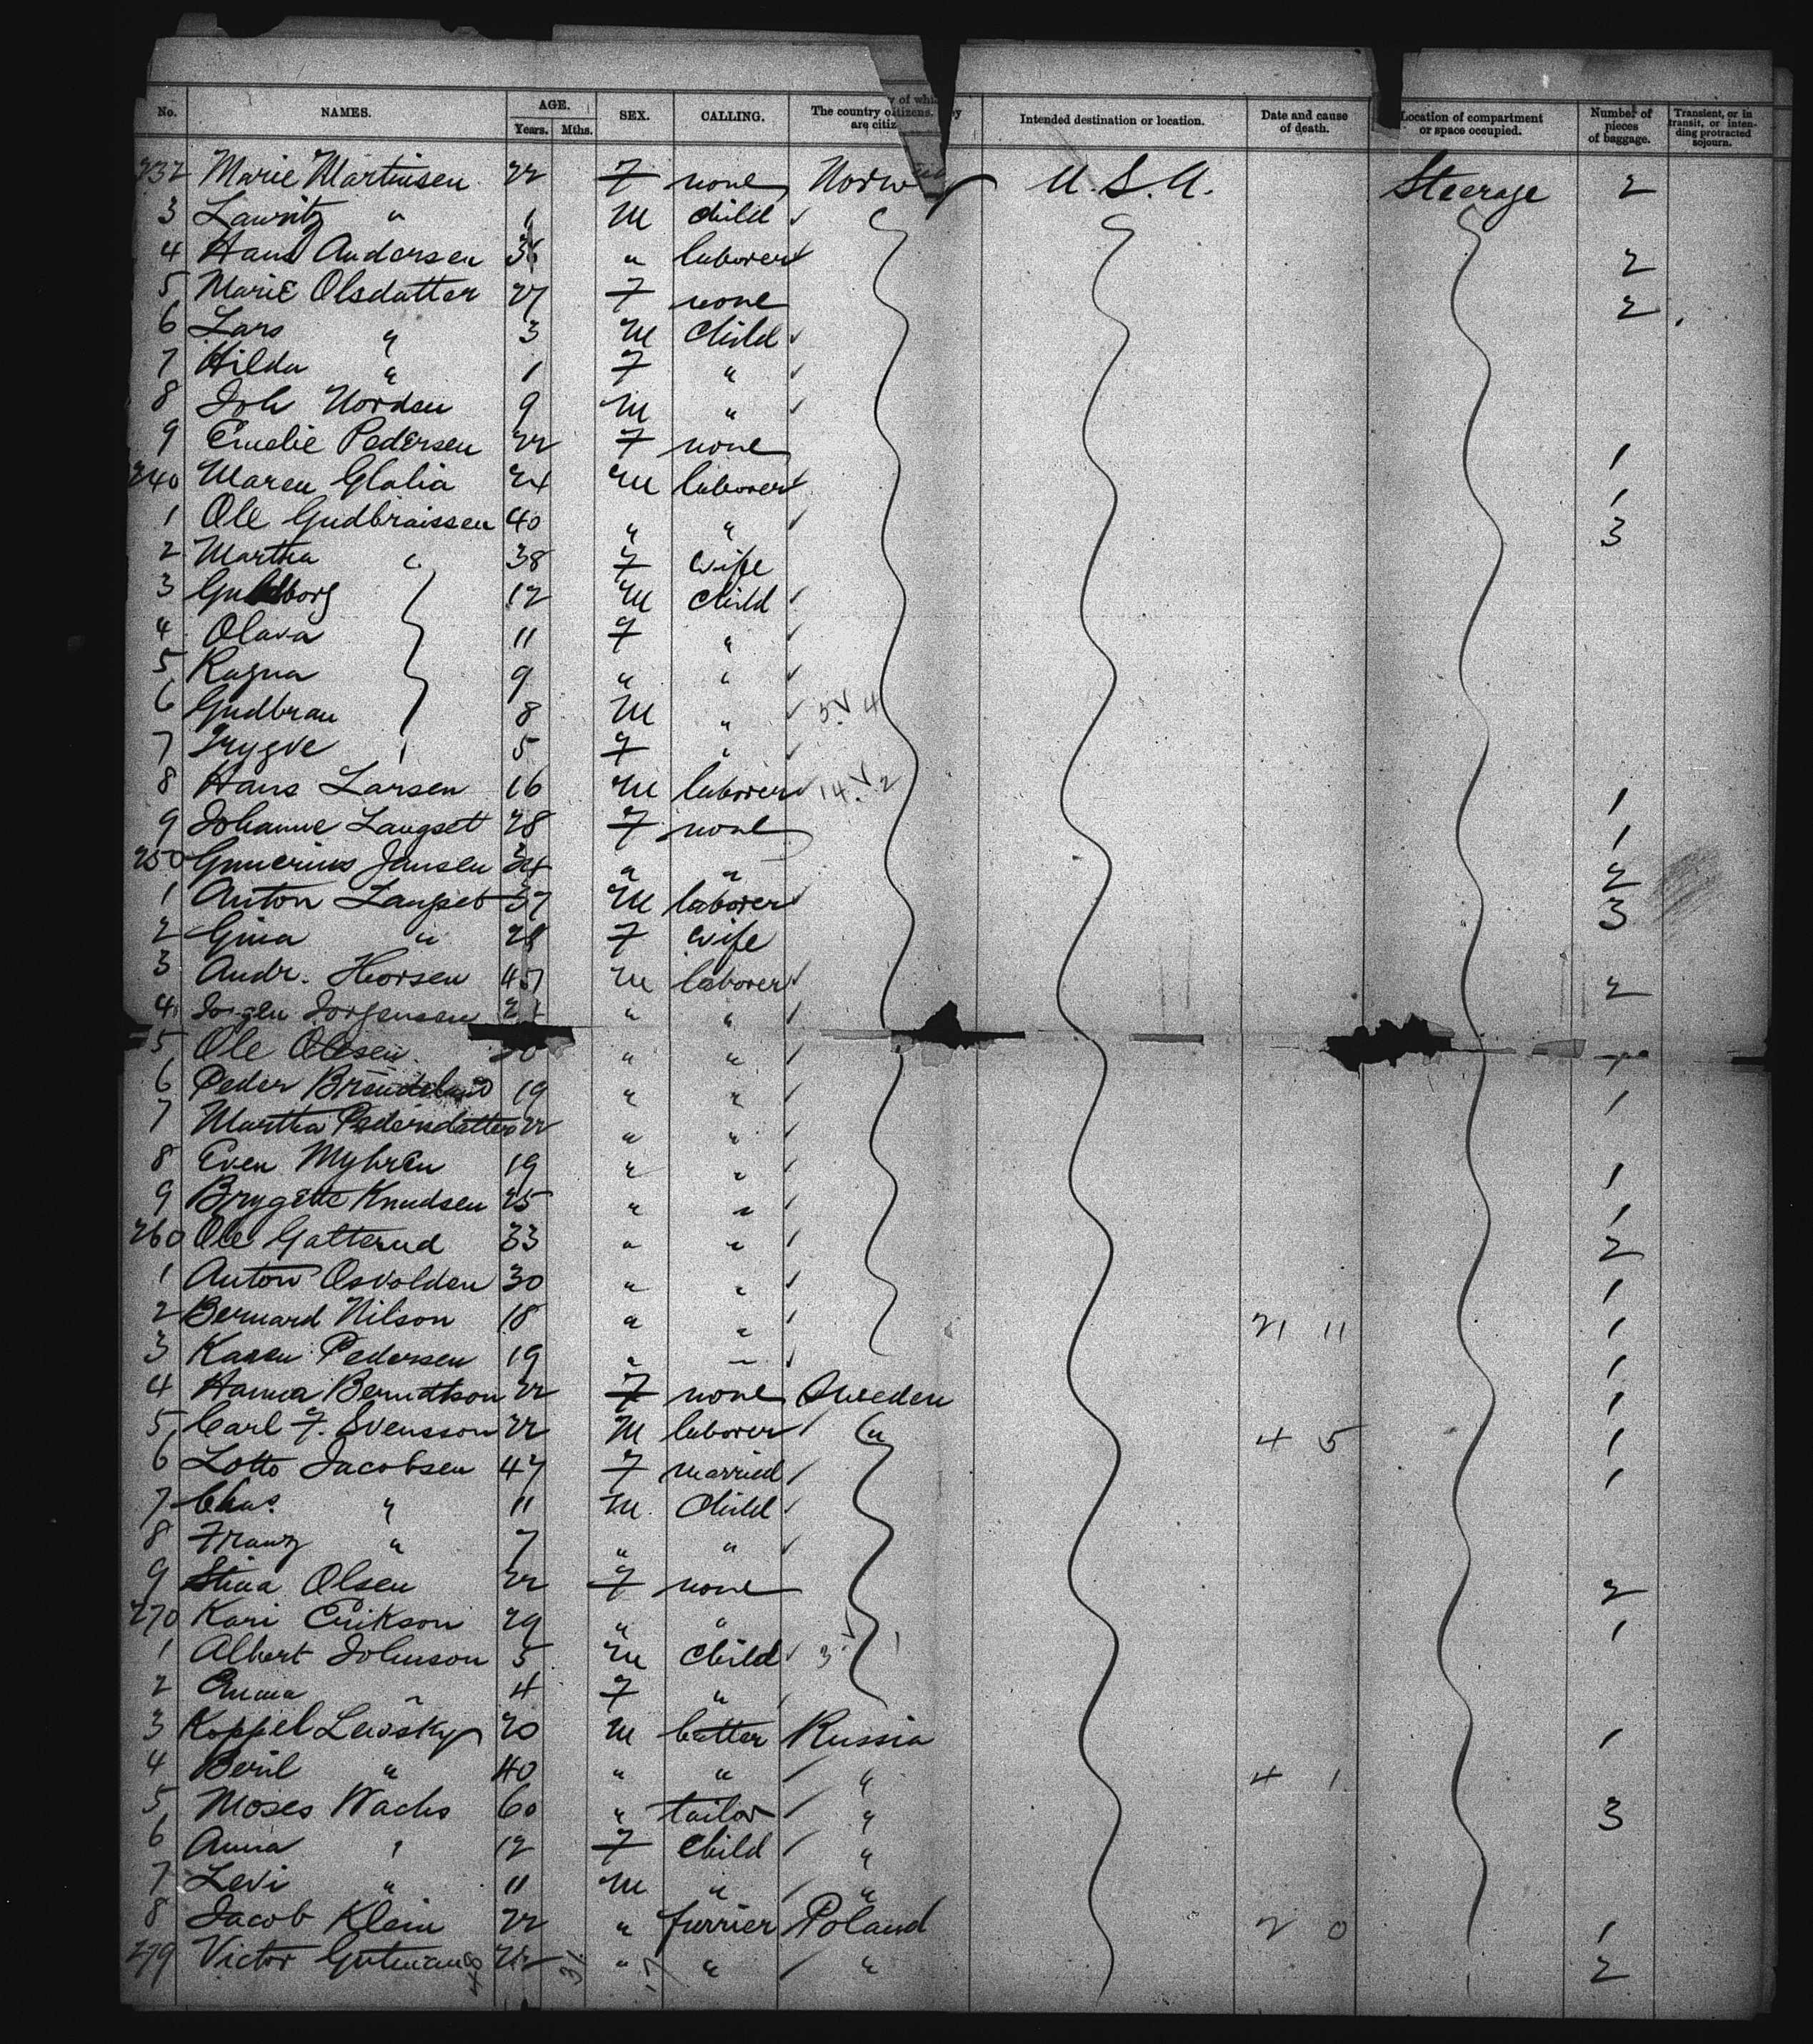 No. NAMES. AGE. Years. Mths. SEX. CALLING. The country of which they are citizens. Intended destination or location. Date and cause of death. Location of compartment or space occupied. Number of pieces of baggage. Transient, or in transit, or intending protracted sojourn.
232 Marie Martinsen 22 F none Norway U.S.A. Steerage 2
3 Lauritz " 1 M child
4 Hans Andersen laborer 2
5 Marie Olsdatter 27 F none 2
6 Lars " 3 M Child
7 Hilda " 1 F "
8 Joh Norden 9 M "
9 Emelie Pedersen 22 F none 1
240 Maren Glolia 24 M laborer 1
1 Ole Gudbraissen 40 " " 3
2 Martha " 38 F wife
3 12 M child
4 Olava 11 F "
5 Ragna 9 " "
6 Gudbran 8 M " 5 4
7 Trygve 5 F "
8 Hans Larsen 16 M laborer 14 2 1
9 Johanne Langset 28 F none 1
250 Gunerius Jansen 34 " " 2
1 Anton Langset 37 M laborer 3
2 Gina " 28 F wife
3 Andr. Thorsen M laborer 2
4 Jorgen Jorgensen " "
5 Ole Olesen " "
6 Peder 19 " " 1
7 Martha Pedersdatter 22 " "
8 Even Myhren 19 " " 1
9 Brygitte Knudsen 25 " " 1
260 Ole Galterud 33 " " 2
1 Anton Osvolden 30 " " 1
2 Bernard Nilson 18 " " 21 11 1
3 Karen Pedersen 19 " " 1
4 Hanna Berndtson 22 F none Sweden 1
5 Carl F. Svensson 22 M laborer " 4 5 1
6 Lotto Jacobsen 47 F married 1
7 Chas. " 11 M Child
8 Franz " 7 " "
9 Stina Olsen 22 F none 2
270 Kari Erikson 29 " " 1
1 Albert Johnson 5 M Child 3 1
2 Emma " 4 F "
3 Koppel Lewsky 20 M Russia 1
4 Beril " 40 " " " 4 1
5 Moses Wachs 60 " tailor " 3
6 Anna " 12 F Child "
7 Levi " 11 M " "
8 Jacob Klein 22 " furrier Poland 2 0 1
279 Victor Gutmann " " " 2